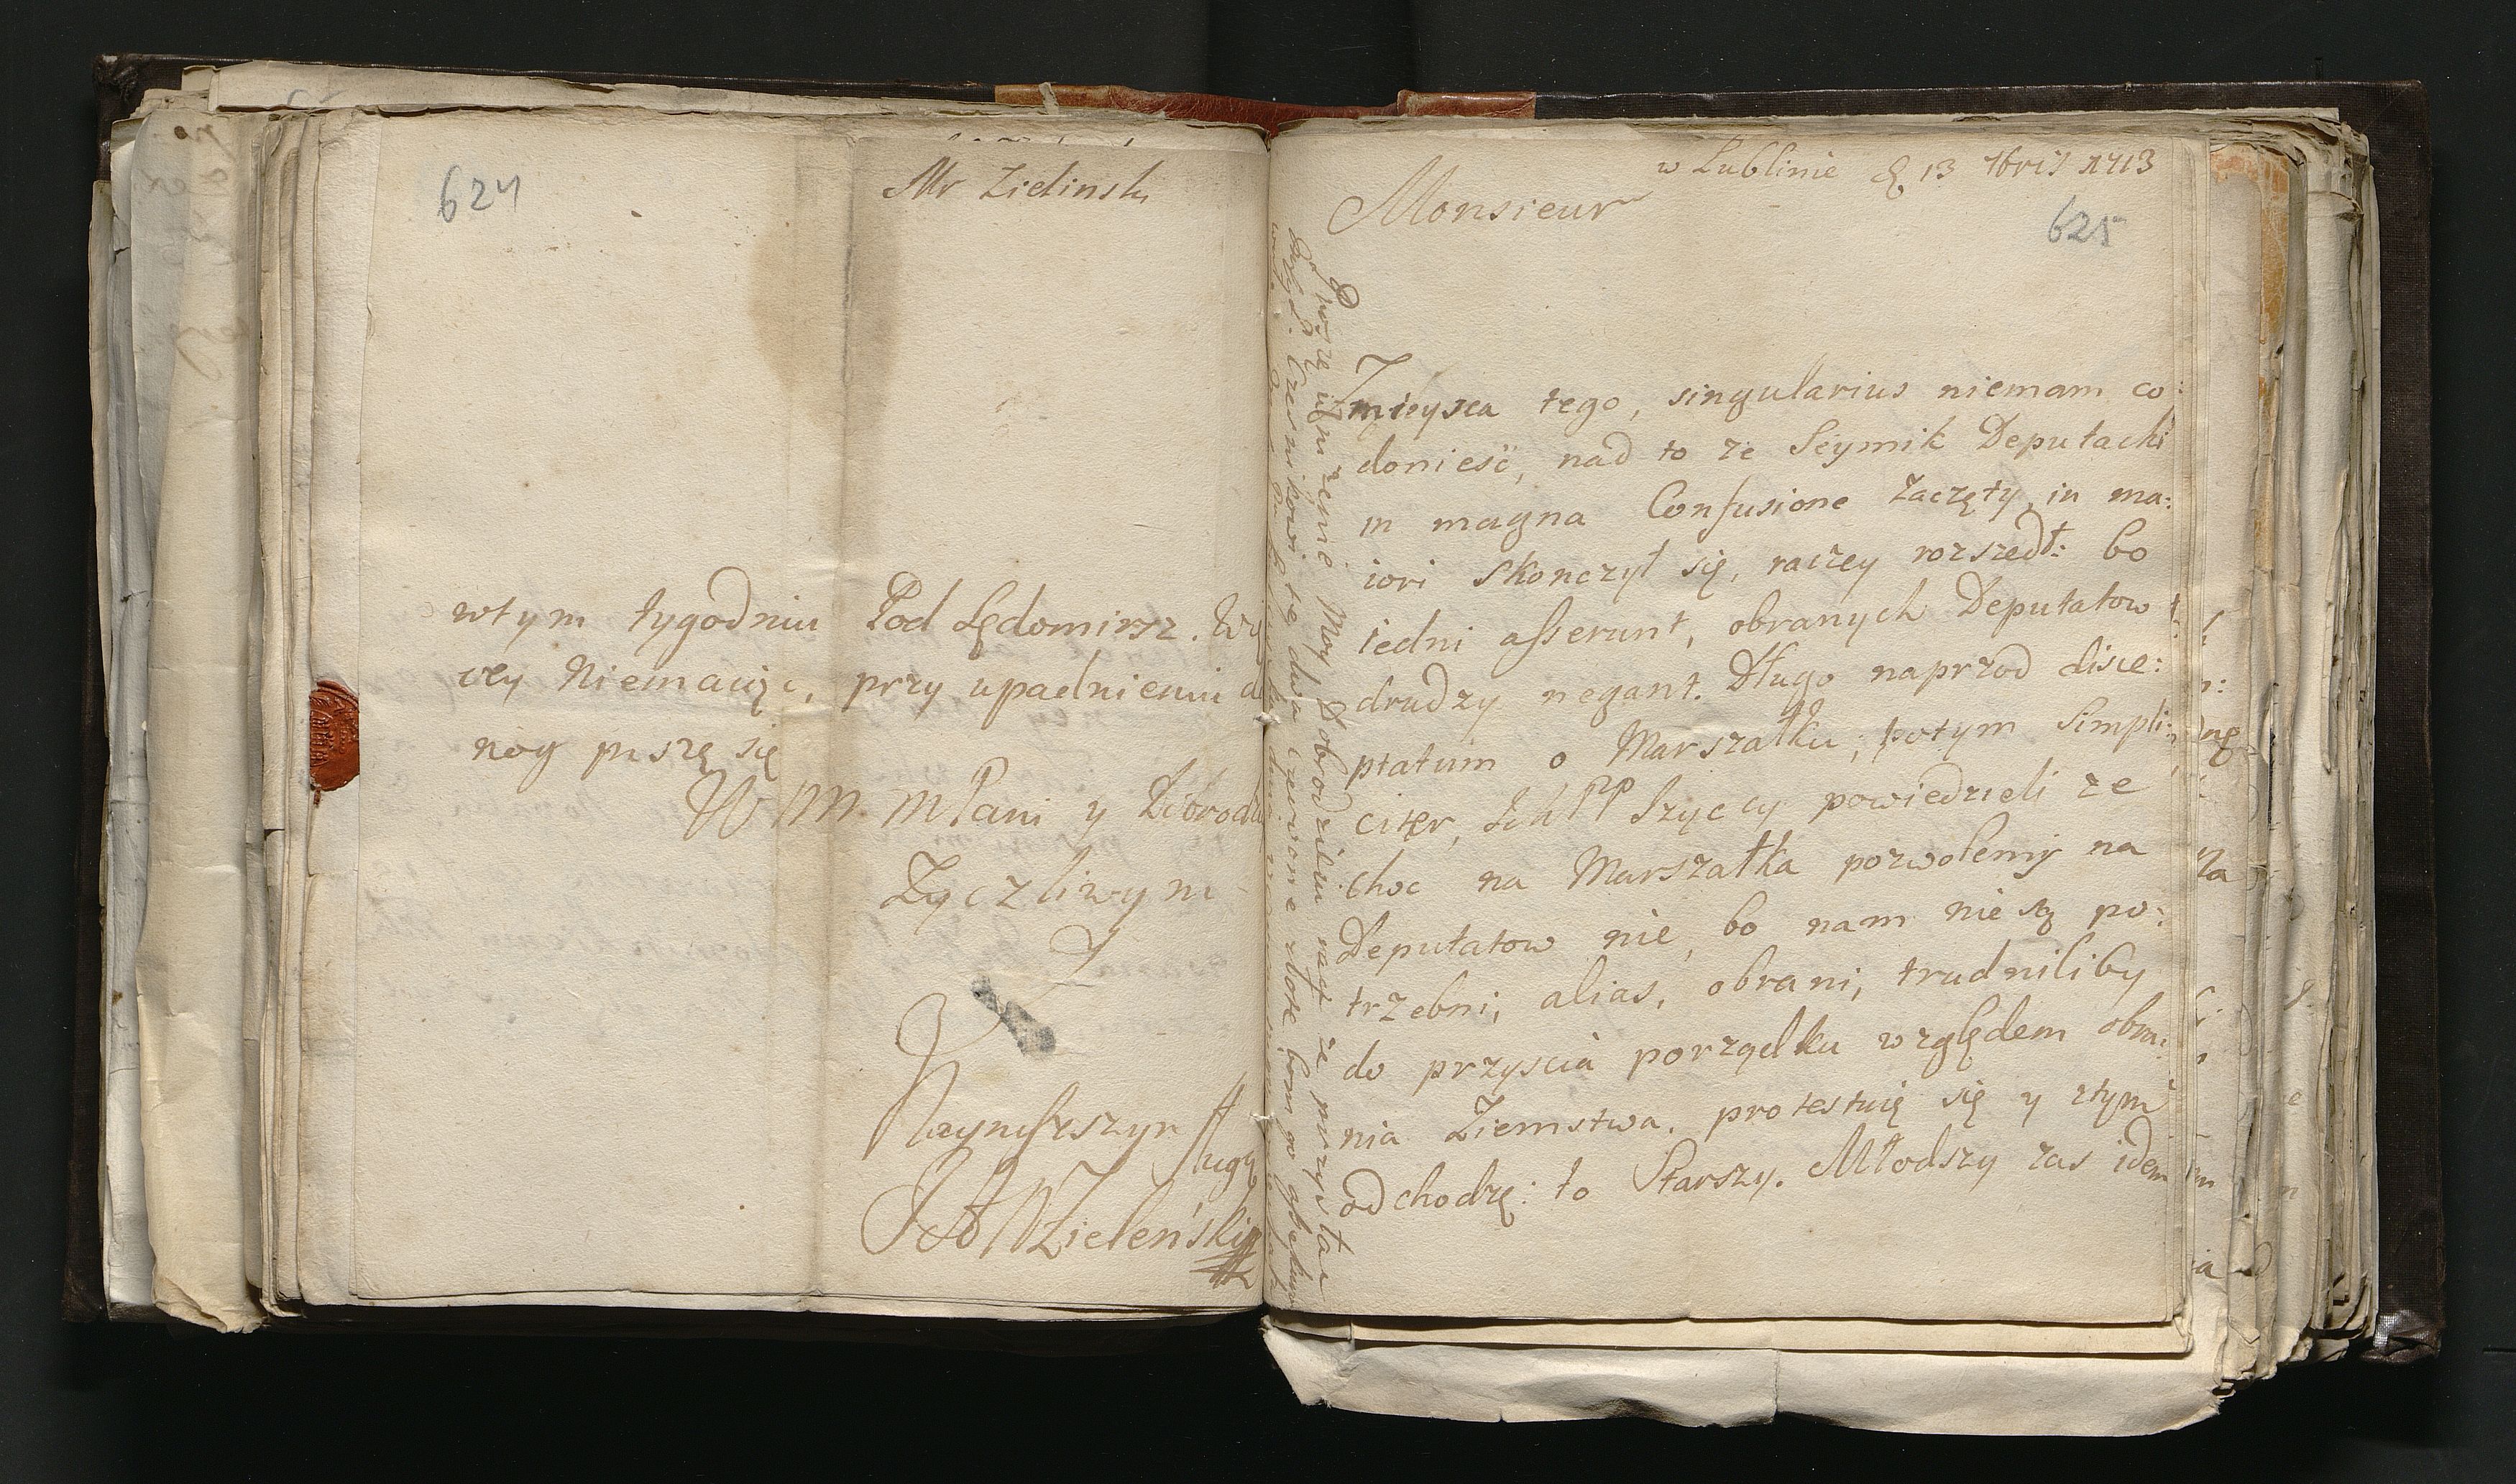 624
Mr Zielinski
wtym tygodniu Pod Sędomirsz. Wi
cey Niemaiąc, przy upadnieniu do
nog piszę się
W M M Pani y Dobrodz
Zyczliwym
y
Naynisszym sługą
Zieleński
w Lublinie d 13 7bris 1713
Monsieur
625
Z mieysca tego, singularius niemam co:
doniesć, nad to ze Seymik Deputacki
in magna Confusione zaczęty, in ma:
iori skonczył się, raczey rozszedł: bo
iedni asserunt, obranych Deputatow
drudzy negant. Długo naprzod disce:
ptatum o Marszałku; potym simpli:
citer, Ich PP Szyccy powiedzieli ze
choc na Marszałka pozwolemy na
Deputatow nie, bo nam nie są po:
trzebni; alias, obrani, trudniliby
do przyscia porządku względem obra:
nia Ziemstwa. protestuię się y ztym
odchodzę: to Starszy. Młodszy zas idem
Proszę uniżenie Moy Dobrodzieiu racz że przysłac
Czesnikowi te dwa czerwone złote bom go